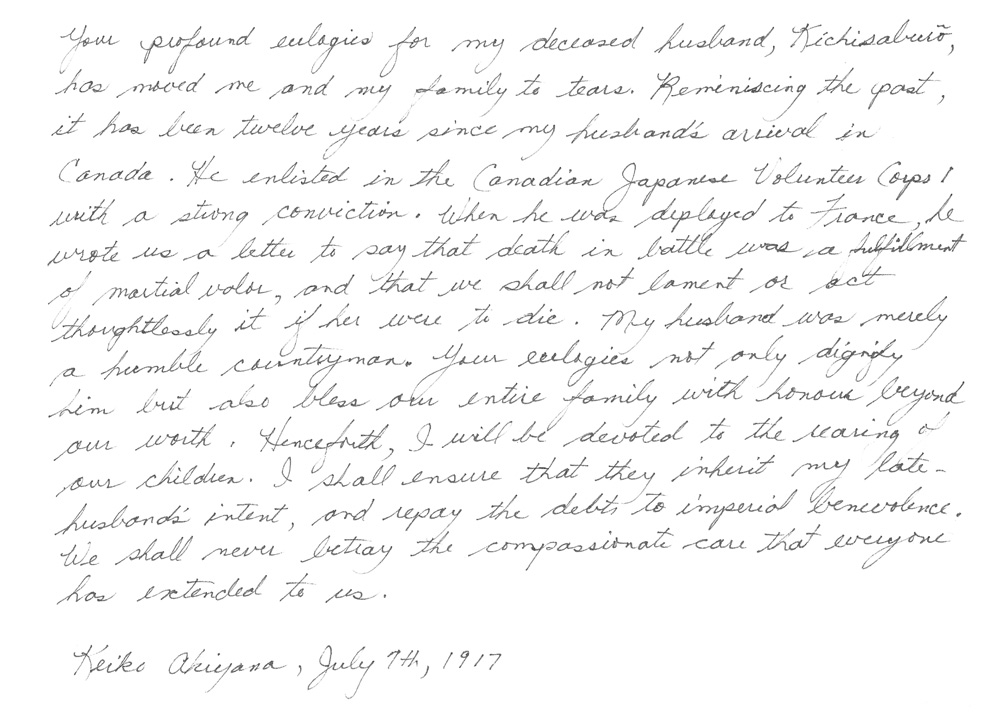 Your profound eulogies for my deceased husband, Kichisaburō,
has moved me and my family to tears. Reminiscing the past,
it has been twelve years since my husband's arrival in
Canada. He enlisted in the Canadian Japanese Volunteer Corps
with a strong conviction. When he was deployed to France, he
wrote us a letter to say that death in battle was a fulfillment
of martial valor, and that we shall not lament or act
thoughtlessly it if her were to die. My husband was merely
a humble countryman. Your eulogies not only dignify
him but also bless our entire family with honour beyond
our worth. Henceforth, I will be devoted to the rearing of
our children. I shall ensure that they inherit my late-
husband's intent, and repay the debts to imperial benevolence.
We shall never betray the compassionate care that everyone
has extended to us.
Keiko Akiyana, July 7th, 1917